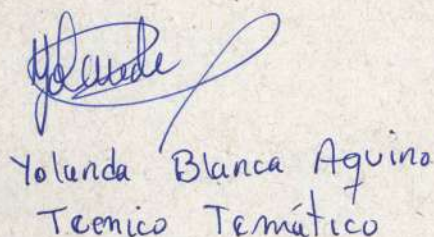 Yolanda
Yolanda Blanca Aquino
Tecnico Temático